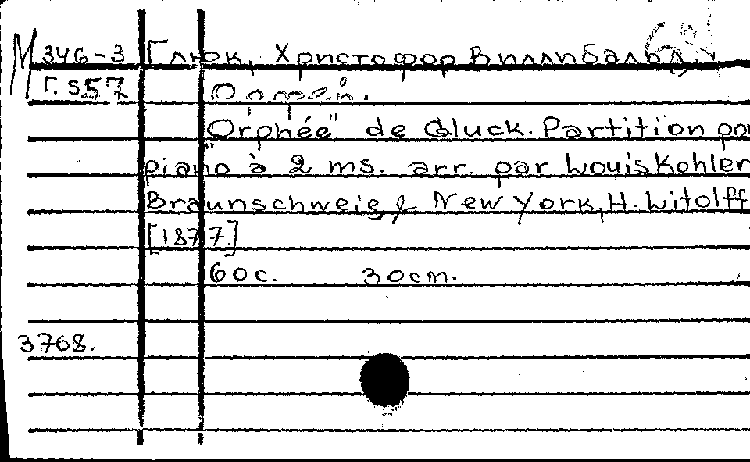 М 346-3 Глюк, Христофор Виллибальд.
Г. 557 Орфей.
"Orphée" de Gluck. Partition pou
piano à 2 ms. arr. par Louis Kohler
Braunschweig & New York, H. Litolff
[1877]
60 c. 30 cm.
3768.